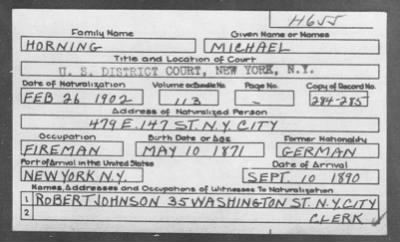 H655
Family Name Given Name or Names
HORNING MICHAEL
Title and Location of Court
U. S. DISTRICT COURT, NEW YORK, N.Y.
Date of Naturalization Volume or Bundle No. Page No. Copy of Record No.
FEB 26 1902 113 - 284-285
Address of Naturalized Person
479 E. 147 ST. N.Y. CITY
Occupation Birth Date or Age Former Nationality
FIREMAN MAY 10 1871 GERMAN
Port of Arrival in the United States Date of Arrival
NEW YORK N.Y. SEPT. 10 1890
Names, Addresses and Occupations of Witnesses To Naturalization
1 ROBERT JOHNSON 35 WASHINGTON ST. N.Y. CITY
2 CLERK